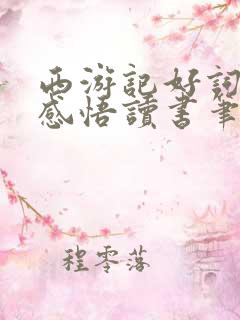 西游記好詞
感悟讀書筆
程零落